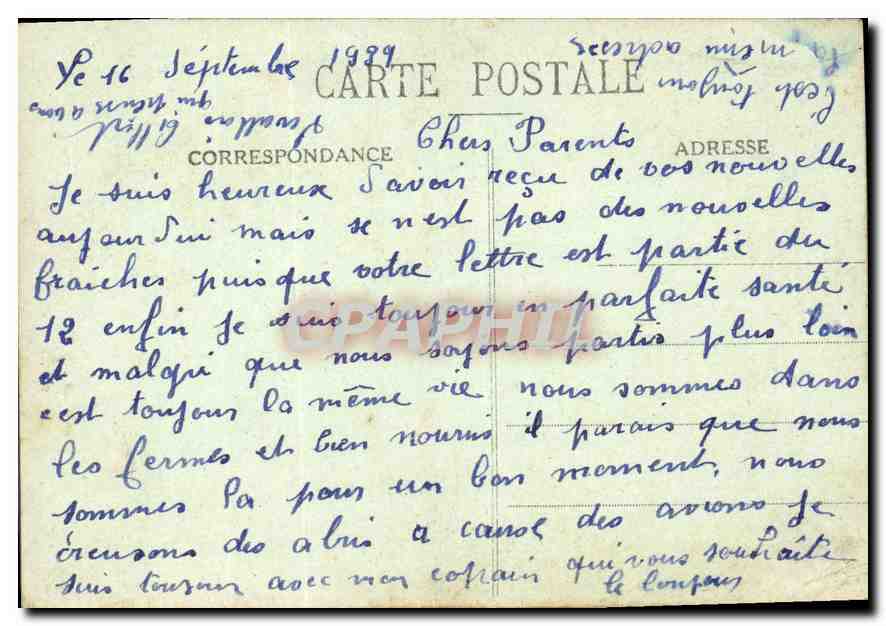 Le 16 Septembre 1939
CARTE POSTALE
CORRESPONDANCE
ADRESSE
Chers Parents
Je suis heureux d'avoir reçu de vos nouvelles
aujourdui mais se n'est pas des nouvelles
fraiches puisque votre lettre est partie du
12 enfin je suis toujour en parfaite santé
et malgré que nous soyons partis plus loin
c'est toujour la même vie nous sommes dans
les fermes et bien nourris il parais que nous
sommes la pour un bon moment, nous
creusons des abris a cause des avions Je
suis toujour avec mon copain qui vous souhaite
le bonjour
qui pense a vous
C'est toujour
la même adresse
CPAPHIL